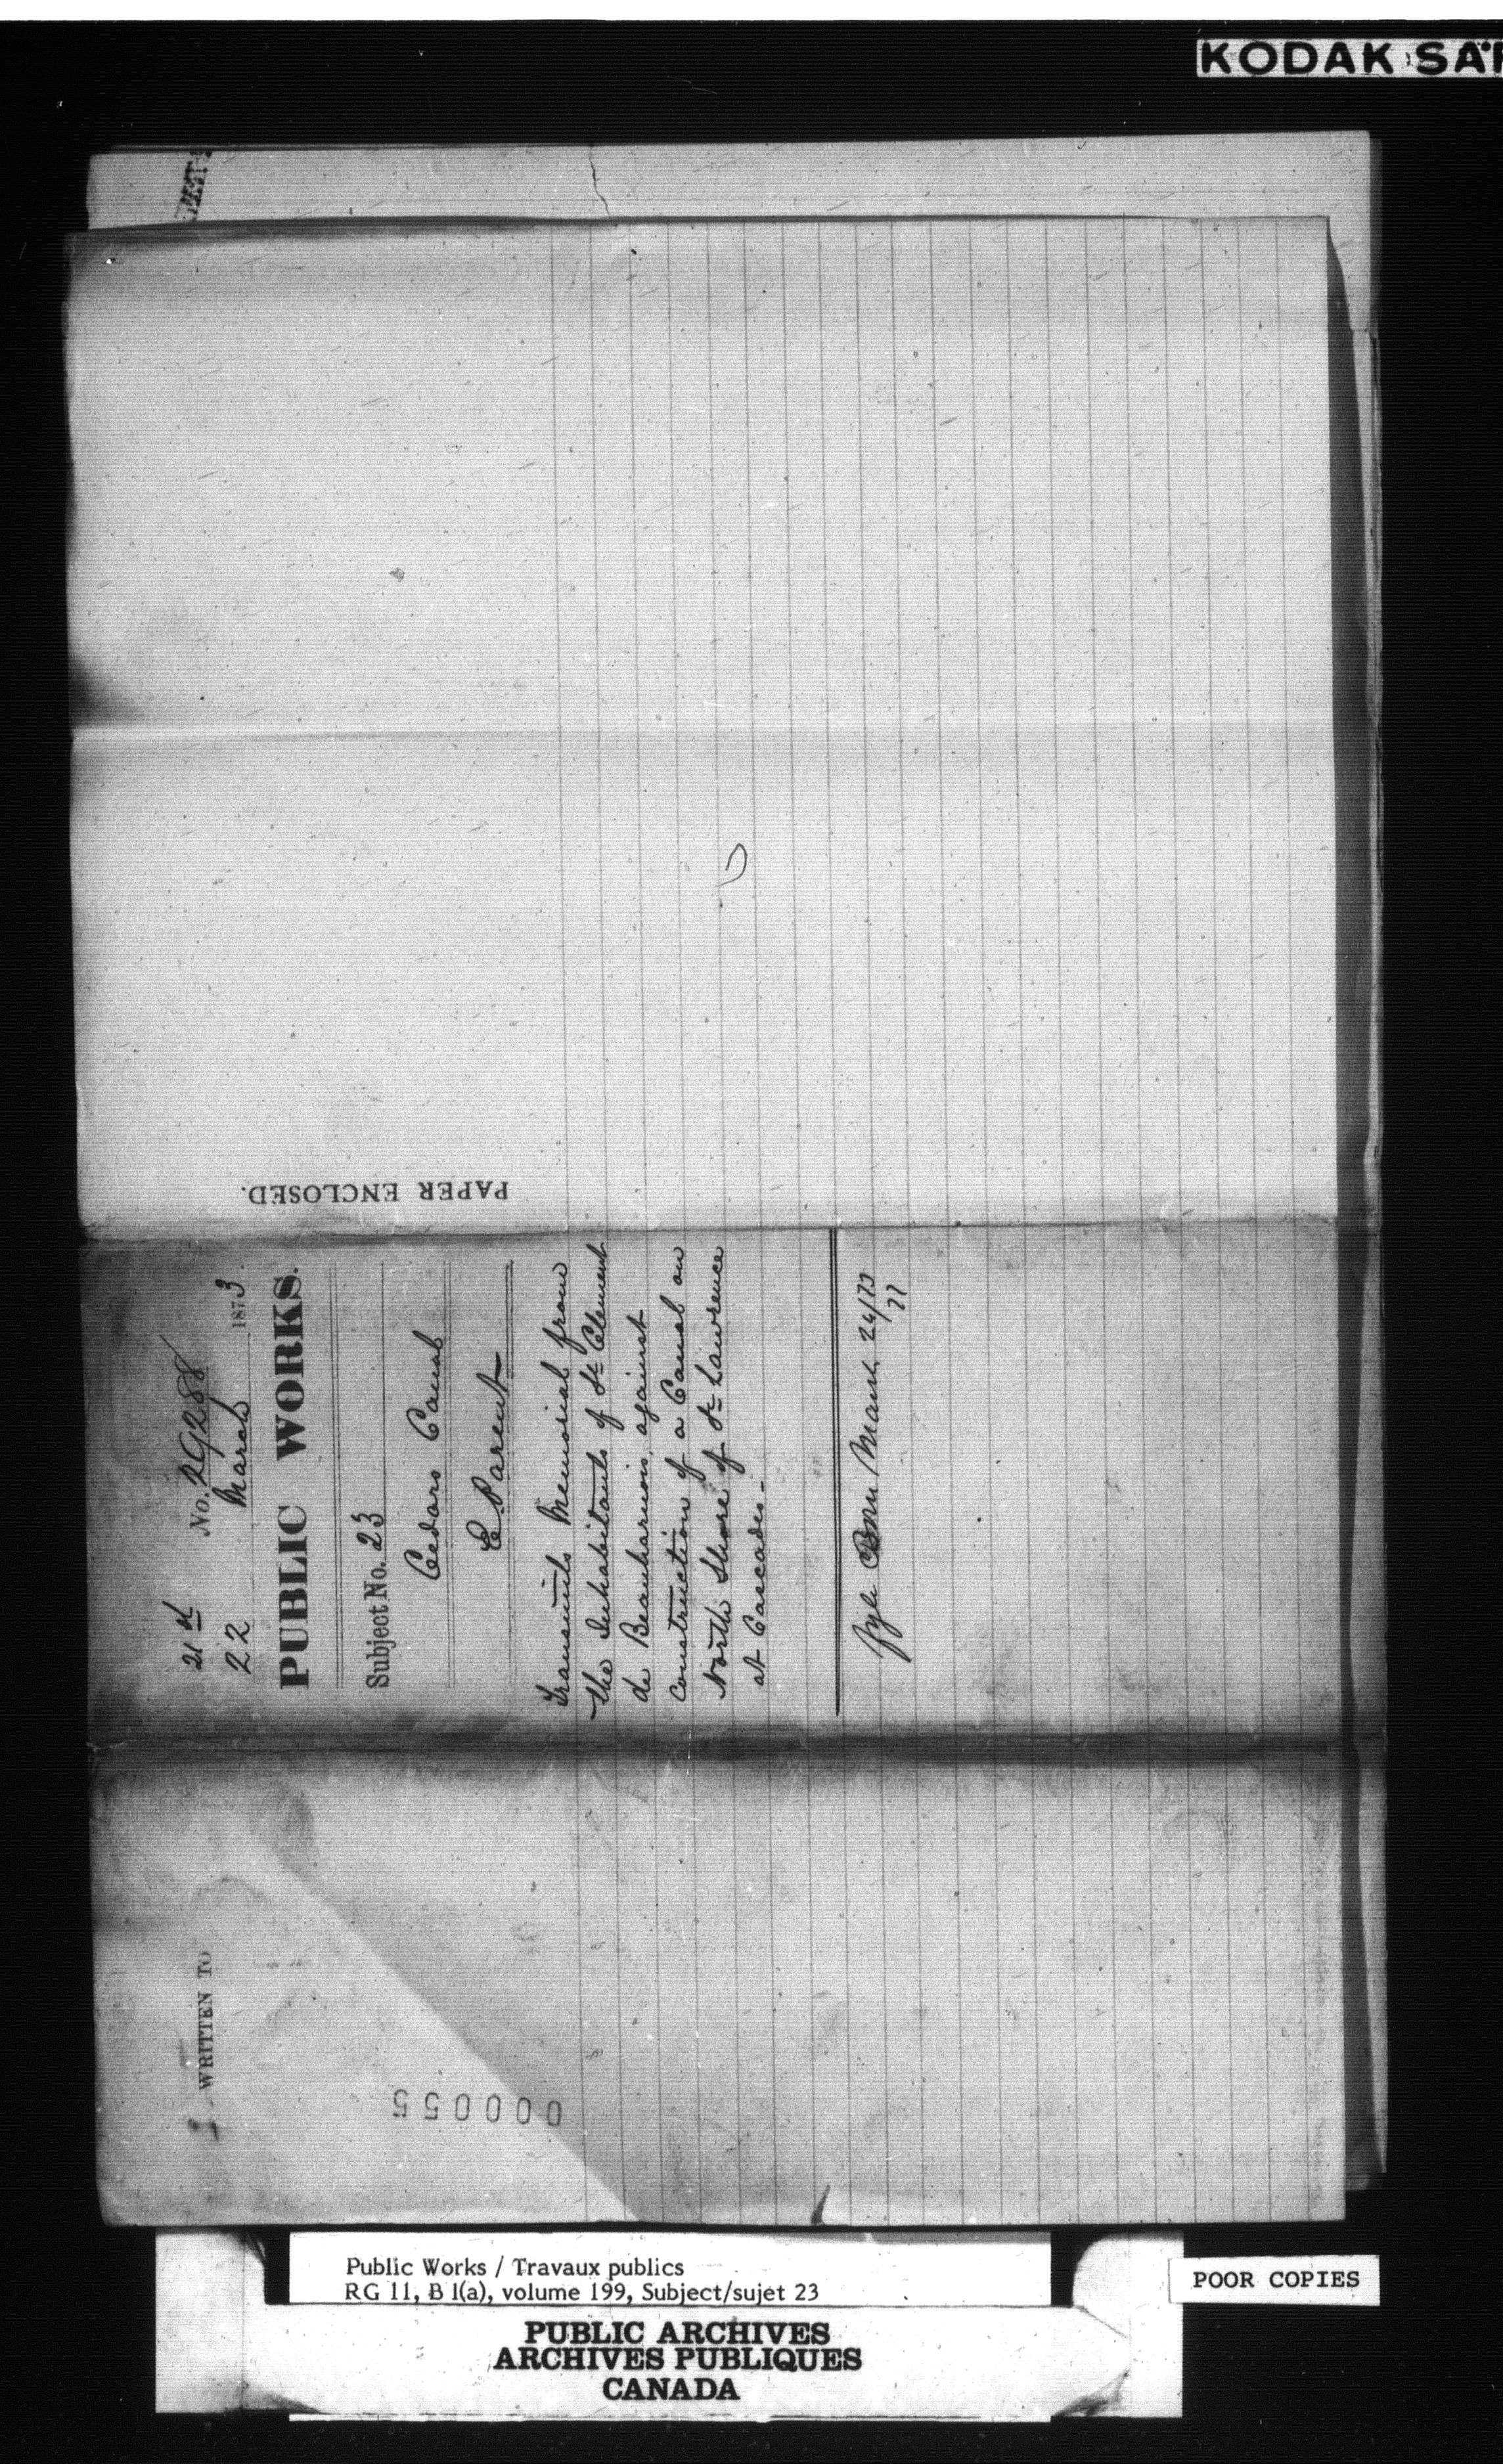 KODAK SAF
DEPT
PAPER ENCLOSED.
21st No. 29288
22 March 1873.
PUBLIC WORKS.
Subject No. 23
Cedars Canal
E. Parent
Transmits Memorial from
the Inhabitants of St. Clement
de Beauharnois, against
Construction of a Canal on
North Shore of St. Lawrence
at Cascades.
March 26/73
WRITTEN TO
000055
Public Works / Travaux publics
RG 11, B 1(a), volume 199, Subject/sujet 23
POOR COPIES
PUBLIC ARCHIVES
ARCHIVES PUBLIQUES
CANADA